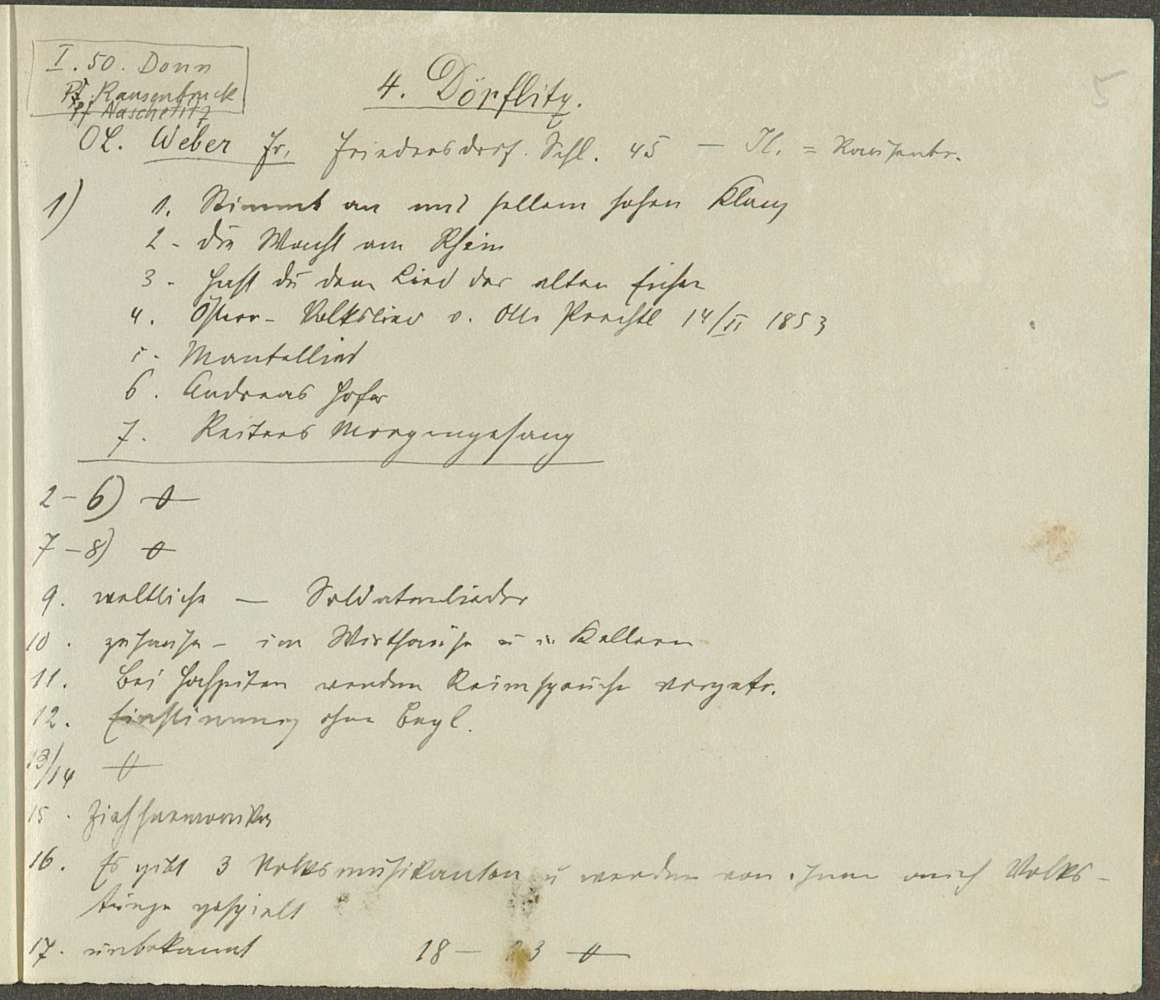 I. 50. Donn
Pf. Rausenbruck
Pf Naschetitz
5
4. Dörflitz.
OL. Weber Fr. Friedersdorf. Schl. 45 — = Rausenbr.
1) 1. Stimmt an mit hellem hohen Klang
2 - die Wacht am Rhein
3 - Hast du dem Lied der alten Eichen
4. Österr- Volkslied v. Otto Prechtl 14/II 1853
5 - Mantellied
6. Andreas Hofer
7. Reiters Morgengesang
2 – 6) 0
7 – 8) 0
9. weltliche — Soldatenlieder
10. zuhause – im Wirthause u in Kellern
11. Bei Hochzeiten werden Reimsprüche vorgetr.
12. Einstimmig ohne Begl.
13/14 0
15. Ziehharmonika
16. Es gibt 3 Volksmusikanten u werden von ihnen auch Volks-
tänze gespielt
17. unbekannt 18 — 23 0